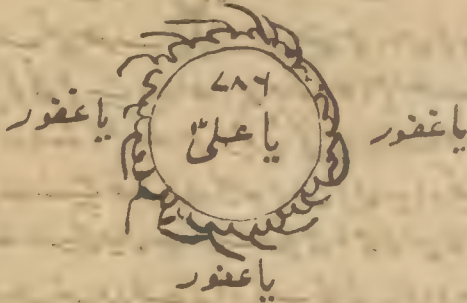 ۷۸۶
یا علیّ
یا غفور
یا غفور
یا غفور